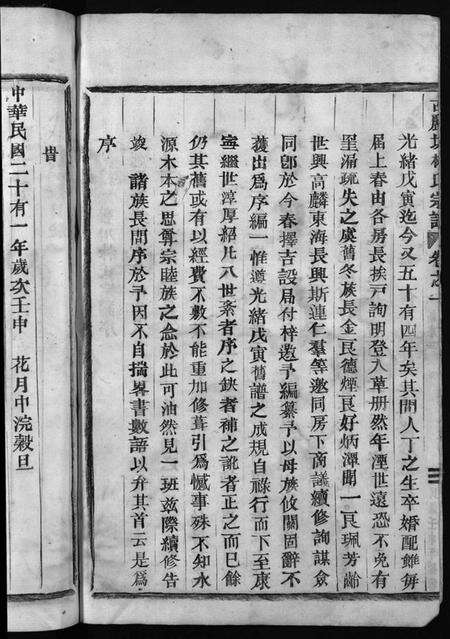 光緒戊寅迄今又五十有四年矣其間人丁之生卒婚配雖毎
届上春由各房長挨戸詢明登入草册然年湮世遠恐不免有
罣漏疏失之虞舊冬族長金良德煙良好炳潭聞一良珮芳齡
世興高麟東海長興斯連仁羣等邀同房下商議續修詢謀僉
同卽於今春擇吉設局付梓邀予編纂予以母族攸關固辭不
獲出爲序編一惟遵光緒戊寅舊譜之成規自祿行而下至康
寧經世淳厚紹凡八世紊者序之鈌者補之訛者正之而巳餘
仍其舊或有以經費不敷不能重加修葺引爲憾事殊不知水
源木本之思尊宗睦族之念於此可油然見一班玆際續修告
竣 諸族長間序於予因不自揣畧書數語以弁其首云是爲
序
 旹
中華民國二十有一年歲次壬申 花月中浣穀旦
氏宗譜 卷之一